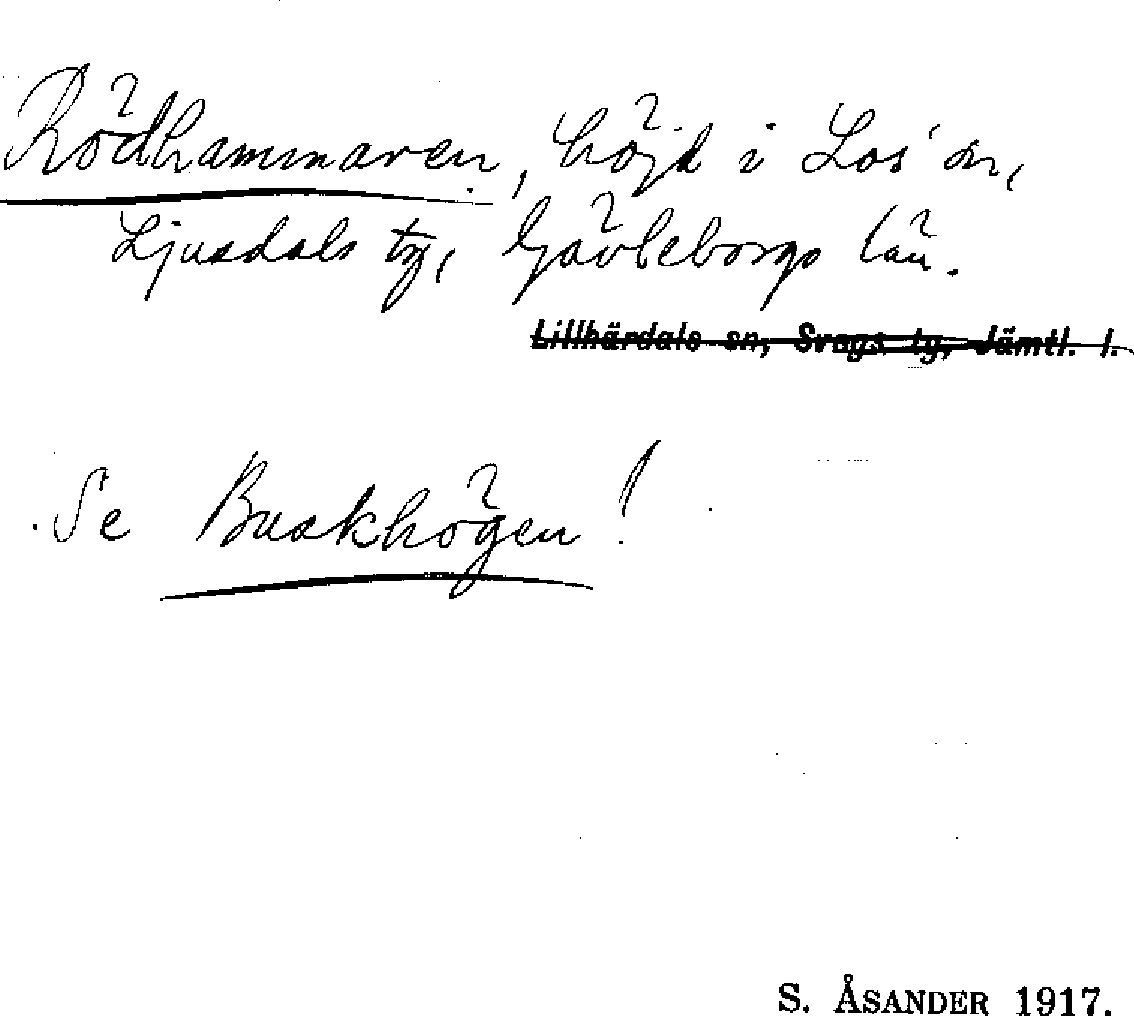 Rödhammaren, höjd i Los' sn,
Ljusdals tg, Gävleborgs län.
Lillhärdals sn, Svegs tg, Jämtl. l.
Se Buskhögen!
S. ÅSANDER 1917.